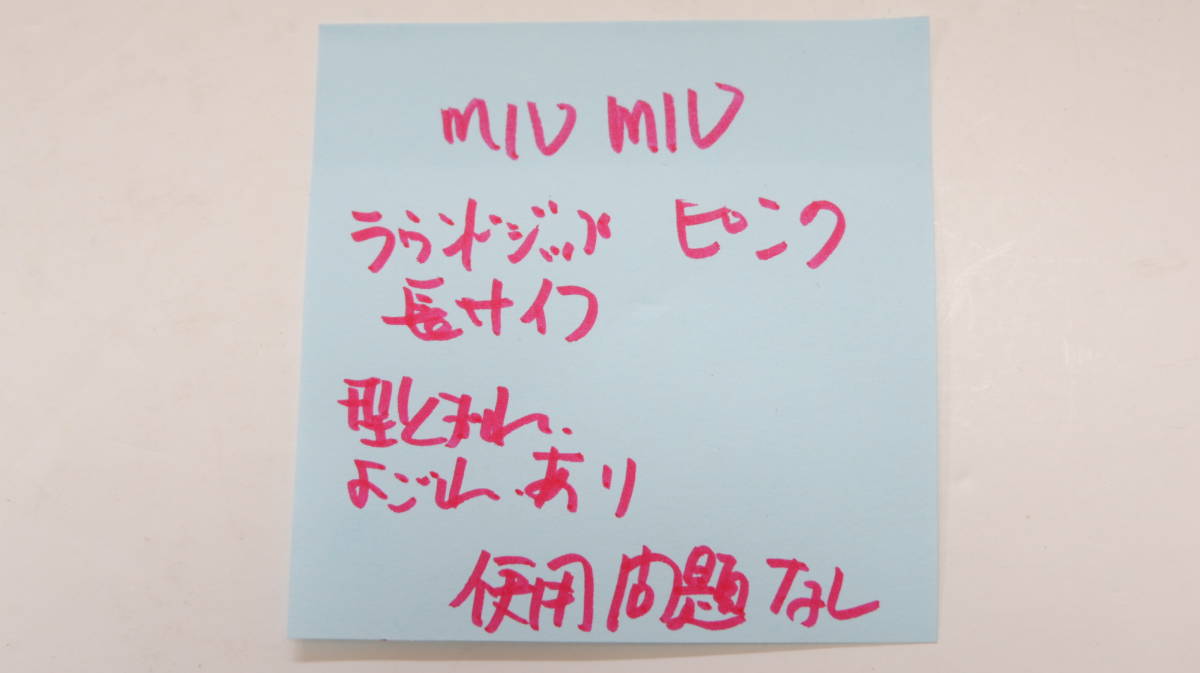 MIU MIU
ラウンドジップ ピンク
長サイフ
型くずれ、
よごれ、あり
使用問題なし